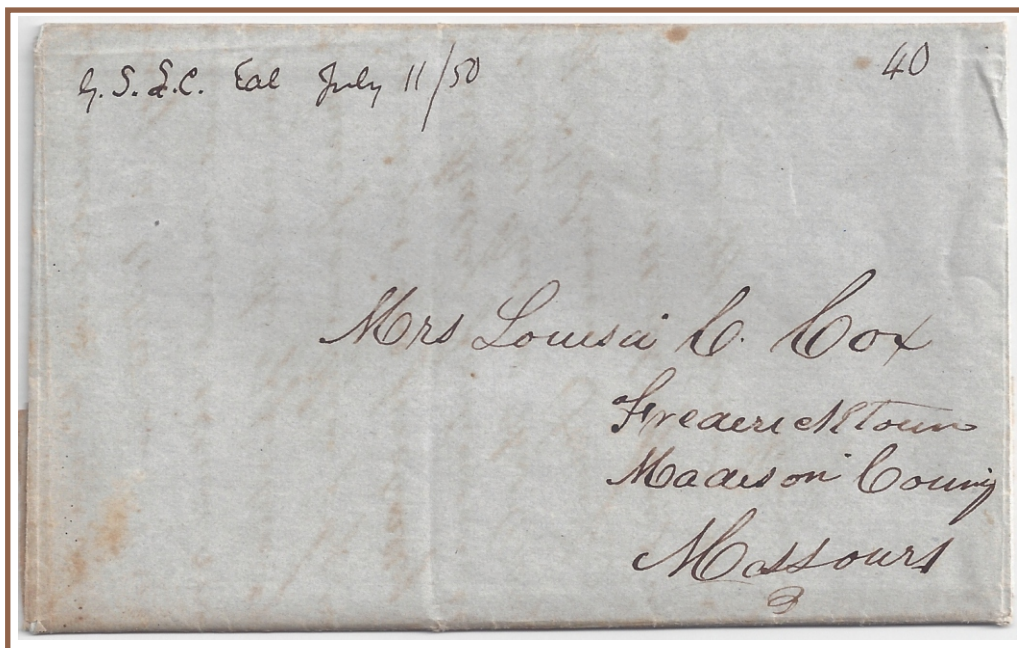 G. S. L. C. Cal July 11/50 40
Mrs Louisa C. Cox
Fredericktown
Madison County
Missouri